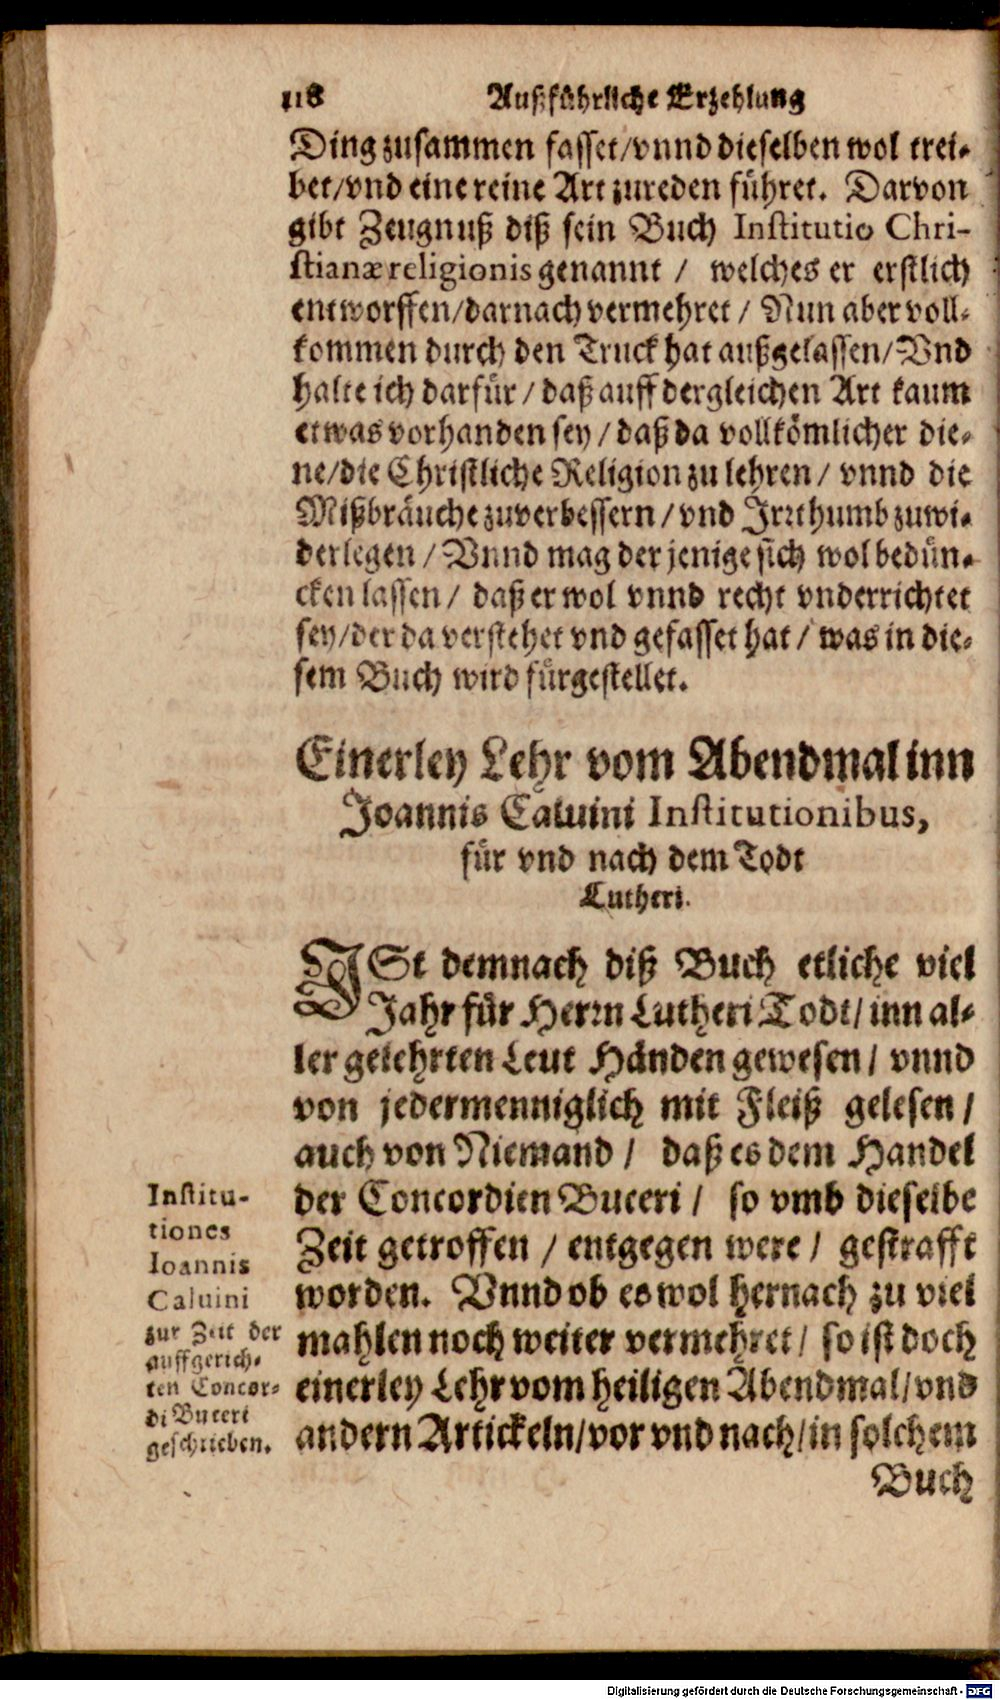 118 Außführliche Erzehlung
Ding zusammen fasset/vnnd dieselben wol trei-
bet/vnd eine reine Art zureden führet. Darvon
gibt Zeugnuß diß sein Buch Institutio Chri-
stianæ religionis genannt / welches er erstlich
entworffen/darnach vermehret / Nun aber voll-
kommen durch den Truck hat außgelassen/Vnd
halte ich darfür / daß auff dergleichen Art kaum
etwas vorhanden sey / daß da vollkömlicher die-
ne/die Christliche Religion zu lehren / vnnd die
Mißbräuche zuverbessern / vnd Jrrthumb zuwi-
derlegen / Vnnd mag der jenige sich wol bedün-
cken lassen / daß er wol vnnd recht vnderrichtet
sey/der da verstehet vnd gefasset hat / was in die-
sem Buch wird fürgestellet.
Einerley Lehr vom Abendmal inn
Joannis Caluini Institutionibus,
für vnd nach dem Todt
Lutheri.
JSt demnach diß Buch etliche viel
Jahr für Herrn Lutheri Todt/ inn al-
ler gelehrten Leut Händen gewesen / vnnd
von jedermenniglich mit Fleiß gelesen /
auch von Niemand / daß es dem Handel
der Concordien Buceri / so vmb dieselbe
Zeit getroffen / entgegen were / gestrafft
worden. Vnnd ob es wol hernach zu viel
mahlen noch weiter vermehret / so ist doch
einerley Lehr vom heiligen Abendmal/vnd
andern Artickeln/vor vnd nach/in solchem
Buch
Institu-
tiones
Ioannis
Caluini
zur Zeit der
auffgerich-
ten Concor-
di Buceri
geschrieben.
Digitalisierung gefördert durch die Deutsche Forschungsgemeinschaft - DFG